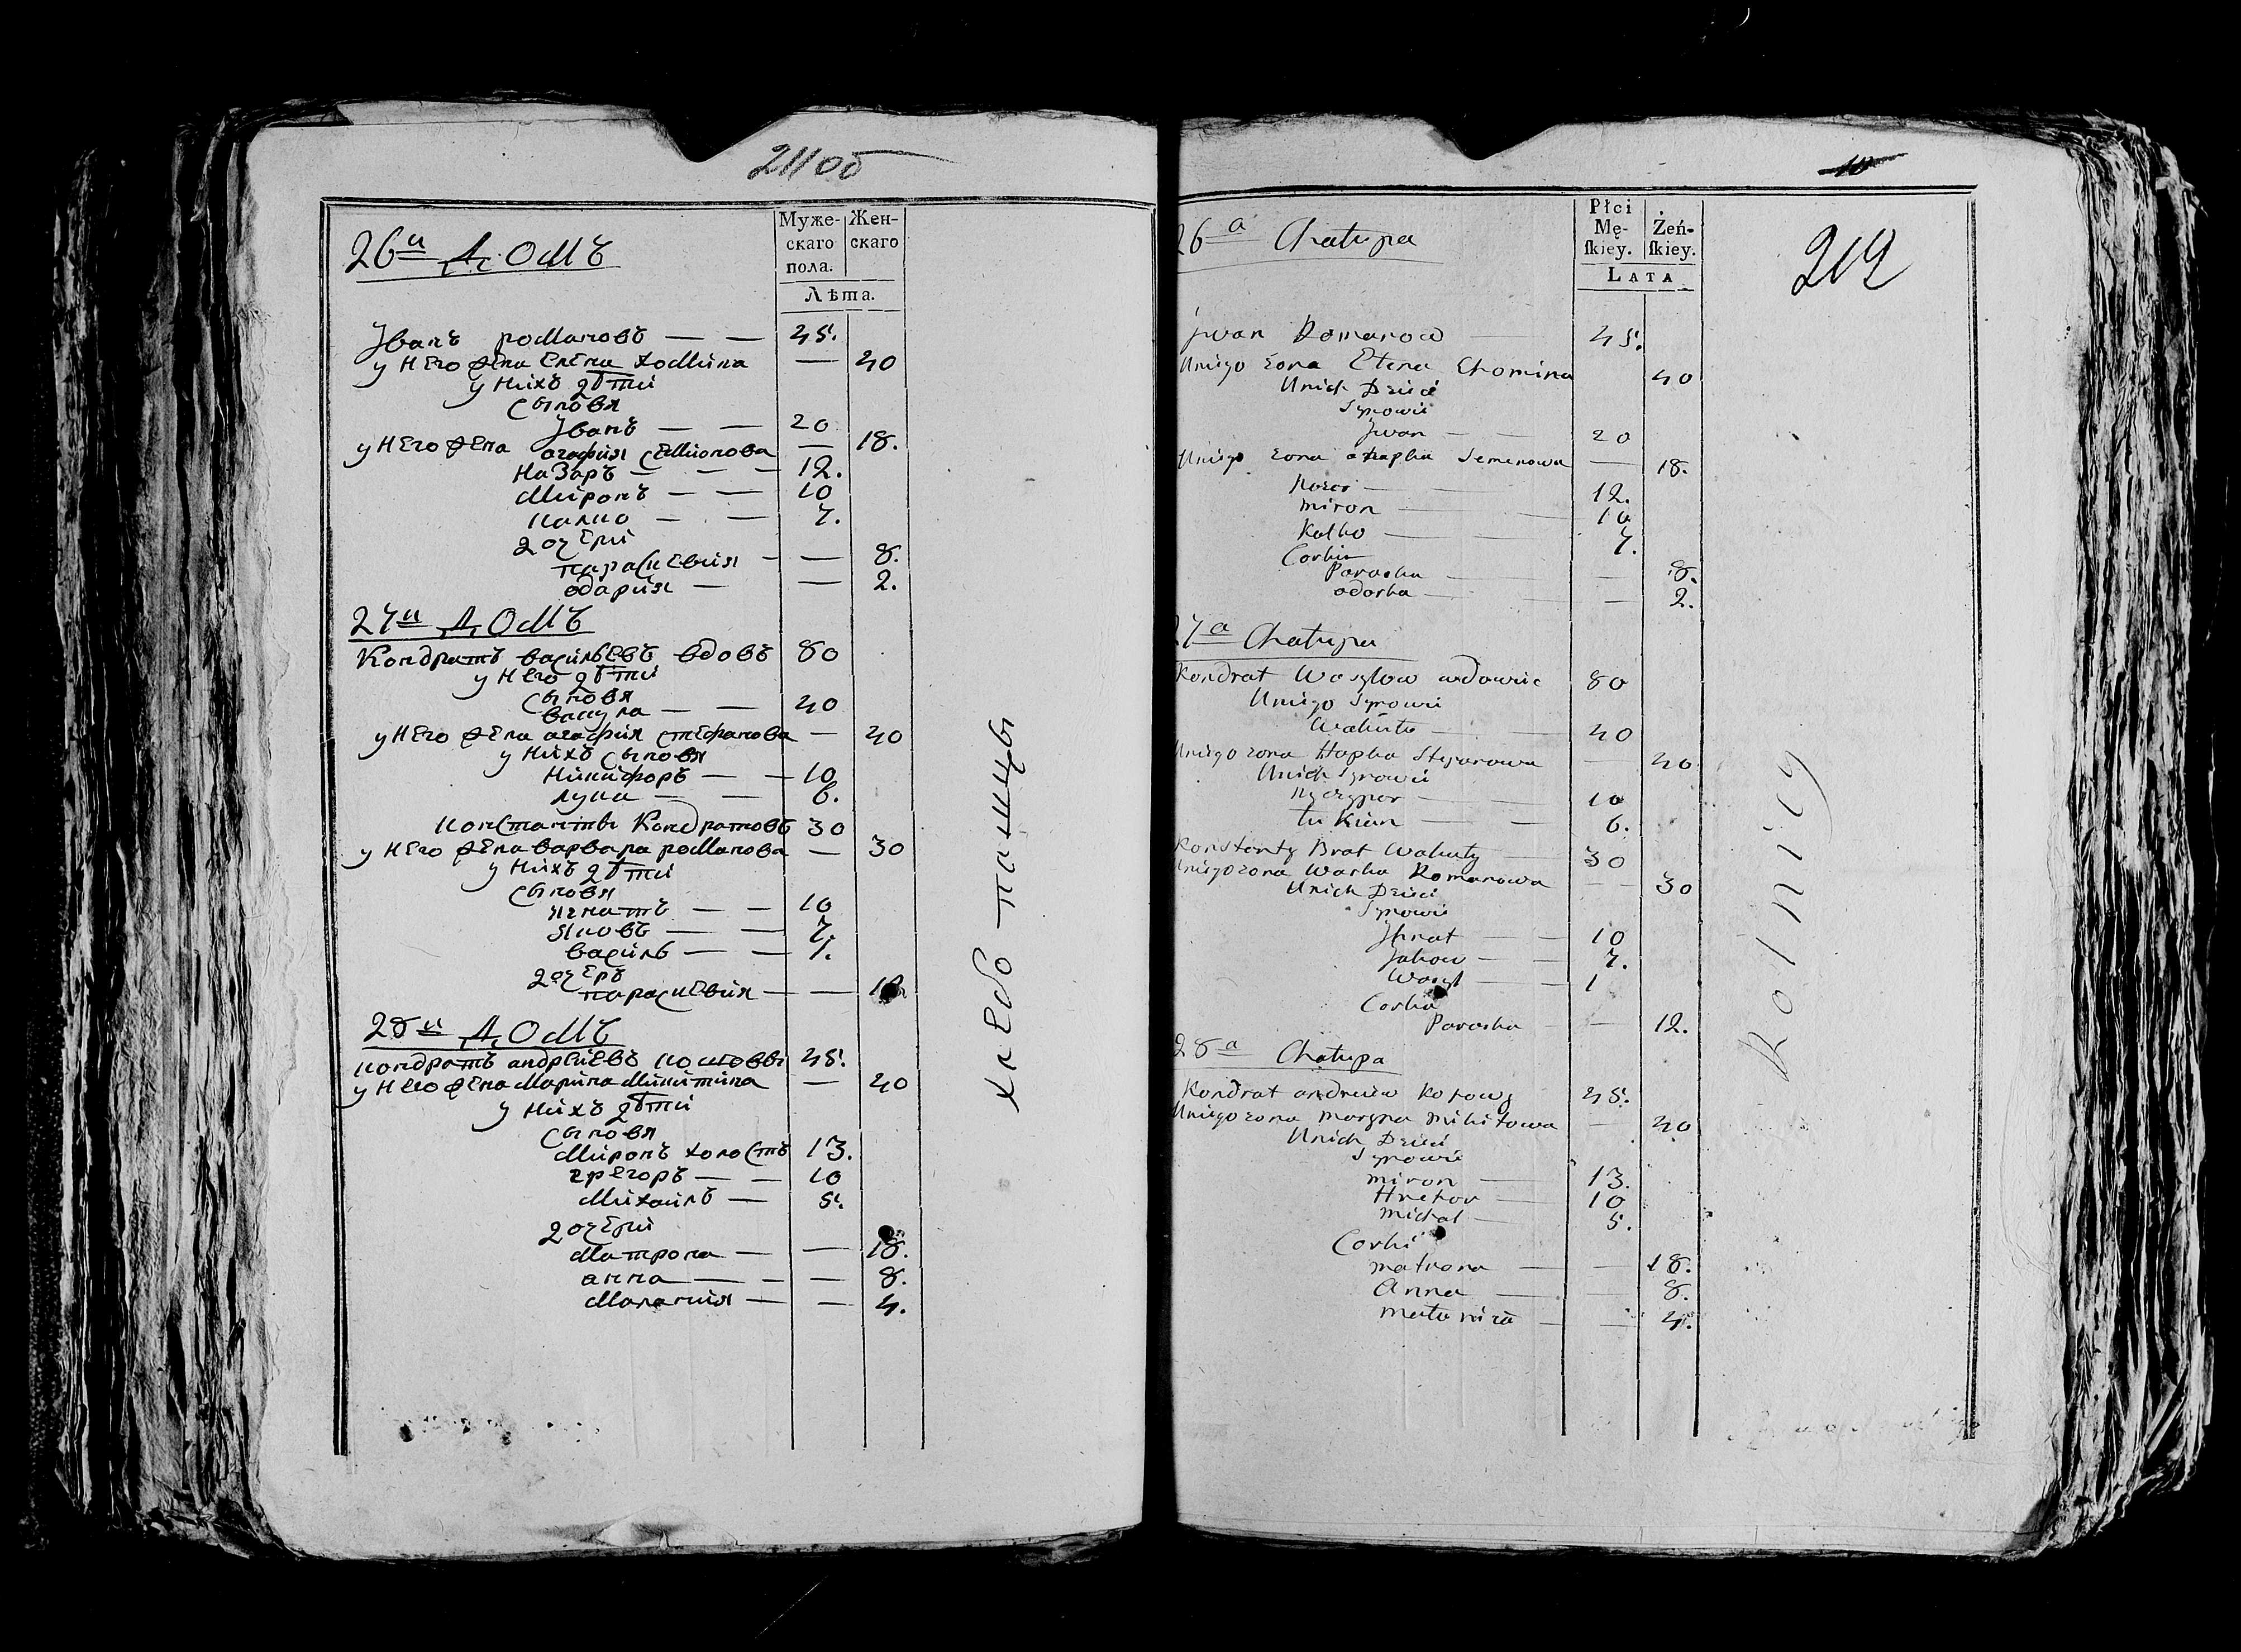 211 об
26й ДОМЪ
Муже-
скаго
пола.
Жен-
скаго
Лѣта.
Іванъ романовъ — — 45.
у него жена Елена хомина — 40
у нихъ дѣти
сыновя
Іванъ — — 20
у него жена агафия семионова — 18.
назаръ — — — 12.
миронъ — — 10
калко — — 7.
дочери
параскевия — — 8.
одария — — 2.
27й ДОМЪ
Кондратъ васильевъ вдовъ 80
у него дѣти
сыновя
вакула — — 40
у него жена агафия стефанова — 40
у нихъ сыновя
никифоръ — — 10
лука — — 6.
константи Кондратовъ 30
у него жена варвара романова — 30
у нихъ дѣти
сыновя
игнатъ — — 10
яковъ — — 7.
василь — — 1.
дочеръ
параскевия — — 12
28й ДОМЪ
кондратъ андреиевъ 45.
у него жена марина микитина — 40
у нихъ дѣти
сыновя
миронъ холостъ 13.
грегоръ — — 10
михаилъ — 5.
дочери
матрона — — 18.
анна — — — 8.
малания — — 4.
хлебо пашцы
26a Chałupa
Płci
Mę-
ſkiey.
Żeń-
ſkiey.
LATA
212
Jwan Romanow — 45.
Uniego zona Elena Chomina 40
Unich Dzieci
Synowie
Jwan — — 20
Uniego zona ahapka Semenowa — 18.
12.
miron — — 10
Kalko — — 7.
Corki
Paraska — — 8.
odarka — — 2.
27a Chałupa
Kondrat Wasylow wdowiec 80
Uniego Synowie
Wakuła — — 40
Uniego zona Hapka Stefanowa — 40
Unich Synowie
Nyczypor — — 10
Łukian — — 6.
Konstanty Brat Wakuły — 30
Uniego zona Warka Romanowa — — 30
Unich Dzieci
Synowie
Jhnat — — 10
Jakow — — 7.
Wasyl — — 1
Corka
Paraska — — 12.
28a Chałupa
Kondrat andreiew 45.
Uniego zona Maryna Mikitowa — 40
Unich Dzieci
Synowie
miron — 13.
Hrehor — 10
michał — 5.
Corki
matrona — — 18.
Anna — — 8.
małania — — 4.
Rolnicy